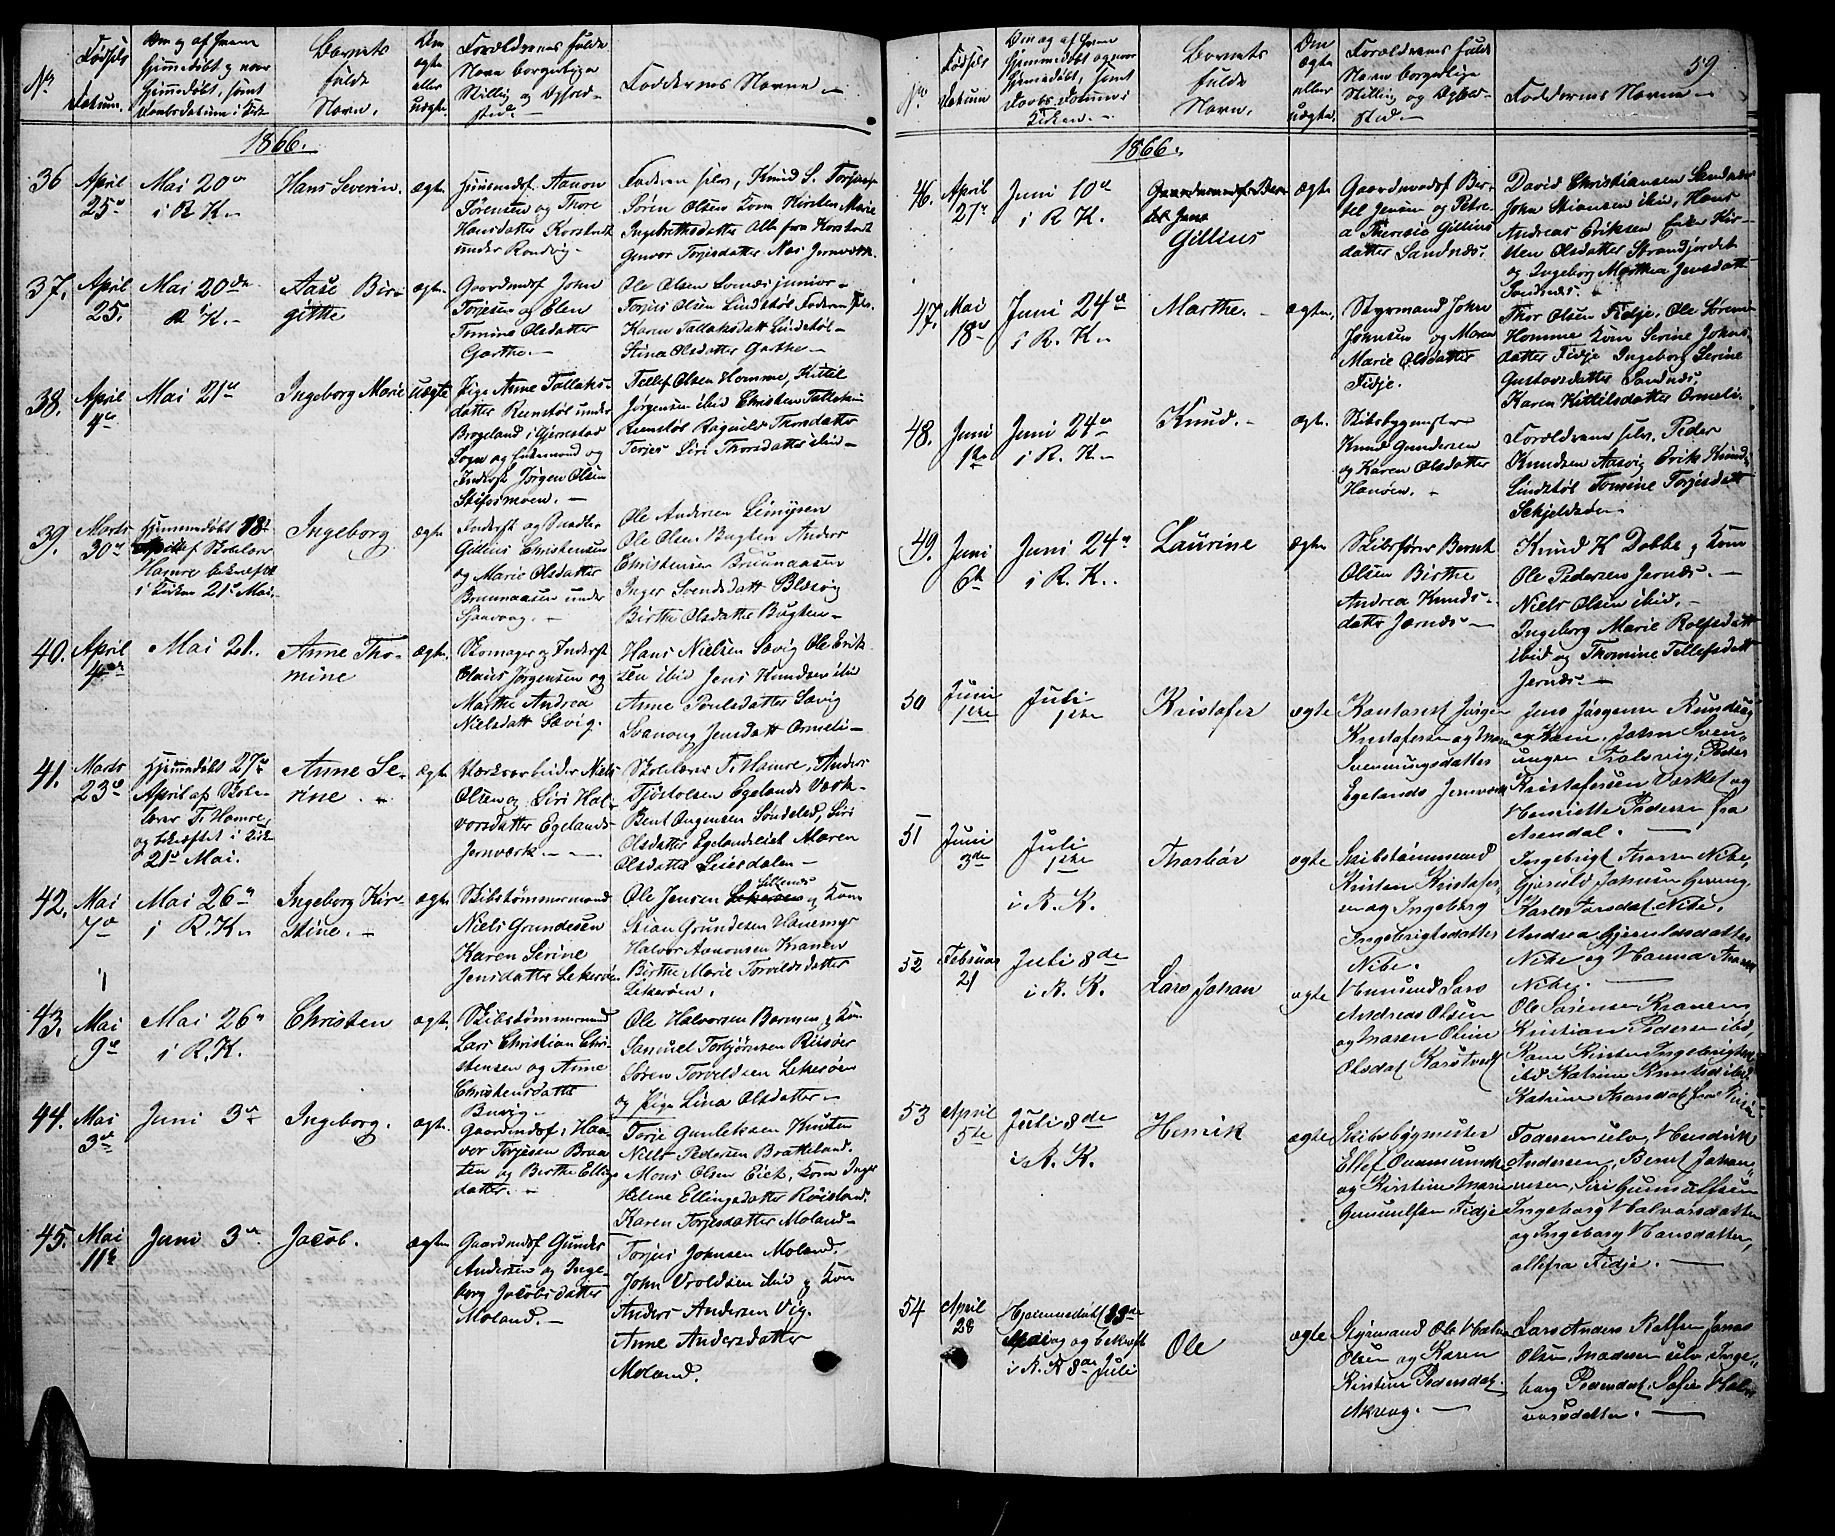 No
Fødsels
Datum.
Hjemmedøbt
Barnets
fulde
Navn.
Om
ægte
eller
uægte.
Forældrenes fulde
Navn borgerlige
Stilling og Ophold-
sted
Faddernes Navne
1866.
36
April
25
Mai 20
i R. K.
Hans Severin.
ægte
Aanon
Sørensen og Thore
Hansdatter
under
Faderen selv, Knud S.
Søren Olsen Kone Kirsten Marie
Ingebrethsdatter Alle fra
Gunvor Torjesdatter Næs Jernværk.
37.
April
25.
Mai 20de
R. K.
Aase Bir-
githe
ægte
Gaardmd. John
Torjesen og Elen
Tomine Olsdatter
Garthe.
Ole Olsen junior
Torjus Olsen Lindstøl Faderen selv.
Karen Tallaksdatt Lindstøl
Stina Olsdatter Garthe
38.
April
4
Mai 21
Ingeborg Marie
uægte
Pige Anne Tallaks-
datter Remstøl under
Brogeland i Gjerrestad
Sogn og
Inderst Jørgen Olsen
Tellef Olsen Homme, Kittil
Jørgensen ibid Christen Tallaksen
Remstøl Ragnild Thorsdatter
Siri Thorsdatter ibid
39.
Marts
30
Hjemmedøbt 18
April af Skolelærer
Hamre bekræftet
i Kirken 21 Mai.
Ingeborg
ægte
Inderst og Snedker
Gillius Christensen
og Marie Olsdatter
Bruunaasen under
Ole Andersen
Ole Olsen Bugten Anders
Christensen Bruunaasen
Inger Svendsdatt
Birthe Olsdatter Bugten
40.
April
4
Mai 21.
Anne Tho-
mine
ægte
Skomager og Inderst
Claus Jørgensen og
Marthe Andrea
Nielsdatt Savig.
Hans Nielsen Savig Ole Erik-
sen ibid Jens Knudsen ibid
Anne Poulsdatter Savig
Svanoug Jensdatt Ormeli
41.
Marts
23
Hjemmedøbt 27
April af Skole-
lærer T. Hamre,
og bekræftet i Kirken
21 Mai.
Anne Se-
rine.
ægte
Værksarbeider Niels
Olsen og Siri Hal-
vorsdatter Egelands
Jernværk.
Skolelærer T. Hamre, Anders
Tjøstolsen Egelands Værk
Bent Søndeled, Siri
Olsdatter Maren
Olsdatter
42.
Mai
7
Mai 26
i R. K.
Ingeborg Kir-
stine.
ægte
Skibstømmermand
Niels Grundesen
Karen Serine
Jensdatter Lekerøen
Ole Jensen og Kone
Stian Grundesen
Halvor Aanonsen Kranen
Birthe Marie Torvildsdatter
Lekerøen.
43.
Mai
9
Mai 26
i R. K.
Christen
ægte
Skibstømmermand
Lars Christian Chri-
stensen og Anne
Christensdatter
Buvig
Ole Halvorsen og Kone
Samuel Torbjørnsen Riisøer
Søren Torvildsen Lekerøen
og Pige Lina Olsdatter
44.
Mai
3
Juni 3
Ingeborg.
ægte
Gaardmd. Haa-
vor Torjesen Braa-
ten og Birthe Ellings
datter.
Torje Gunleksen
Niels Pedersen Bratteland.
Mons Olsen Eick, Kone Inger
Helene Ellingsdatter Røisland.
Karen Torjesdatter Moland
45.
Mai
11
Juni 3
Jacob.
ægte
Gaardmd. Gunder
Andersen og Inge-
borg Jacobsdatter
Moland.
Torjus Johnsen Moland.
John Vroldsen ibid og Kone
Anders Andersen Vig.
Anne Andersdatter
Moland.
59
No
Fødsels
Datum
Kirken.
Barnets
fulde
Navn.
Om
ægte
eller
uægte.
Forældrenes fulde
Navn borgerlige
Stilling og Ophold-
sted.
Faddernes Navne
1866.
46.
April
27
Juni 10
i R. K.
Jens
Gillius
ægte
Gaardmd. Ber-
tel Jensen og Petre-
a Theresia Gillius
datter Sandnæs.
David Christiansen Sandnæs
John Stiansen ibid, Hans
Andreas Eriksen Enke Kir-
sten Olsdatter Strandjordet
og Ingeborg Marthea Jensdatt
Sandnæs.
47.
Mai
18
Juni 24
i R. K.
Marthe.
ægte.
Styrmand John
Johnsen og Maren
Marie Olsdatter
Fidje.
Thor Olsen Fidje. Ole Sørens
Homme Kone Serine Johns
datter Fidje Ingeborg Serine
Gustavsdatter Sandnæs,
Karen Kittilsdatter Ormeli.
48.
Juni
1ste
Juni 24
i R. K.
Knud.
ægte.
Skibsbygmester
Knud Gundersen
og Karen Olsdatter
Hanøen.
Forældrene selv. Peder
Knudsen Aasvig Erik Knuds
Lindstøl Tomine Torjesdatt
49.
Juni
6
Juni 24
i R. K.
Laurine
ægte
Skibsfører Bernt
Olsen Birthe
Andrea Knuds-
datter Jernæs
Knud K Dobbe og Kone
Ole Pedersen Jernæs.
Niels Olsen ibid.
Ingeborg Marie Rolfsdatt
ibid og Thomine Tellefsdatt
Jernæs.
50
Juni
1ste
Juli
1ste
Kristofer
ægte
Kantorist Jørgen
Kristofersen og Maren
Svenningsdatter
Egelands Jernværk
Jens Jørgensen
og Kone, John Sven-
ungsen Peder
Kristofersen Værket og
Henriette Pedersen fra
Arendal.
51
Juni
3de
Juli
1ste
i R. K.
Thorbør
ægte
Skibstømmermd
Kristen Kristofer-
sen og Ingeborg
Ingebrigtsdatter
Nibe.
Ingebrigt Thorsen Nibe,
Gjeruld Johnsen
Karen Torsdat. Nibe,
Andrea Gjeruldsdatter
Nibe og Hanna
Nibe.
52
Februar
21
Juli 8de
i R. K.
Lars Johan
ægte
Lars
Andreas Olsen
og Maren Oline
Olsdat
Ole Sørensen Kranen,
Kristian Pedersen ibid,
Kone Kirsten Ingebrigtsen
ibid Katrine Knutsd ibid
Katrine
53
April
5te
Juli 8de
i R. K.
Henrik
ægte
Skibsbygmester
Ellef Gunmundsen
og Kirstine Marie
Gunulfsen Fidje
Faderen selv, Hendrik
Andersen, Bernt Johan-
nesen, Siri Gunnulfsen
Ingeborg Halvorsdatter
og Ingeborg Hansdatter,
alle fra Fidje.
54
April
28
Hjemmedøbt
og bekræft
i R. K 8de Juli
Ole
ægte
Styrmand Ole
Olsen og Karen
Kirstine Pedersdat.
Akvaag.
Lars Anders Rolfsen Jonas
Olsen, Moderen selv, Inge-
borg Pedersdat. Sofie Hal-
vorsdatter.